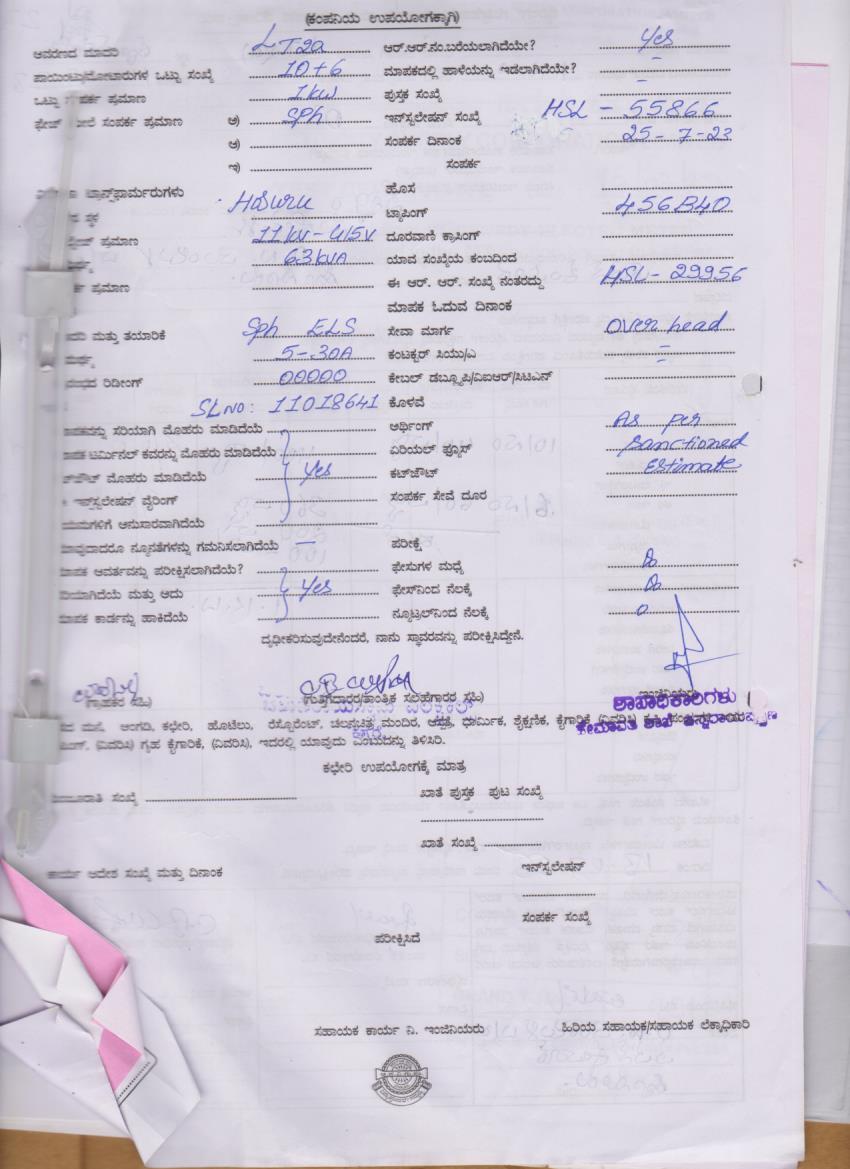 (ಕಂಪನಿಯ ಉಪಯೋಗಕ್ಕಾಗಿ)
ಆವರಣದ ಮಾದರಿ LT2a ಆರ್.ಆರ್.ನಂ.ಬರೆಯಲಾಗಿದೆಯೇ? Yes
ಪಾಯಿಂಟ್ಸು/ಮೋಟಾರುಗಳ ಒಟ್ಟು ಸಂಖ್ಯೆ 10+6 ಮಾಪಕದಲ್ಲಿ ಹಾಳೆಯನ್ನು ಇಡಲಾಗಿದೆಯೇ? –
ಒಟ್ಟು ಸಂಪರ್ಕ ಪ್ರಮಾಣ 1kw ಪುಸ್ತಕ ಸಂಖ್ಯೆ –
ಫೇಸ್ ಮೇಲೆ ಸಂಪರ್ಕ ಪ್ರಮಾಣ ಅ) SPh ಇನ್‌ಸ್ಟಲೇಷನ್ ಸಂಖ್ಯೆ HSL – 55866
ಆ) ಸಂಪರ್ಕ ದಿನಾಂಕ 25-7-23
ಇ) ಸಂಪರ್ಕ
ಟ್ರಾನ್ಸ್‌ಫಾರ್ಮರುಗಳು ಹೊಸ
ಸ್ಥಳ HOSURU ಟ್ಯಾಪಿಂಗ್ 456B40
ಪ್ರಮಾಣ 11kv-415V ದೂರವಾಣಿ ಕ್ರಾಸಿಂಗ್
63kVA ಯಾವ ಸಂಖ್ಯೆಯ ಕಂಬದಿಂದ
ಪ್ರಮಾಣ ಈ ಆರ್. ಆರ್. ಸಂಖ್ಯೆ ನಂತರದ್ದು HSL-29956
ಮಾಪಕ ಓದುವ ದಿನಾಂಕ
ಮತ್ತು ತಯಾರಿಕೆ Sph ELS ಸೇವಾ ಮಾರ್ಗ Over head
5-30A ಕಂಟಕ್ಟರ್ ಸಿಯು/ಎ –
ರಿಡೀಂಗ್ 00000 ಕೇಬಲ್ ಡಬ್ಲ್ಯೂಪಿ/ವಿಐಆರ್/ಸಿಟಿಎನ್ –
SL NO: 11018641 ಕೊಳವೆ
ಸರಿಯಾಗಿ ಮೊಹರು ಮಾಡಿದೆಯೆ ಅರ್ಥಿಂಗ್ As per
ಟರ್ಮಿನಲ್ ಕವರನ್ನು ಮೊಹರು ಮಾಡಿದೆಯೆ ಏರಿಯಲ್ ಫ್ಯೂಸ್ Sanctioned
ಮೊಹರು ಮಾಡಿದೆಯೆ Yes ಕಟ್‌ಔಟ್ Estimate
ಇನ್‌ಸ್ಟಲೇಷನ್ ವೈರಿಂಗ್ ಸಂಪರ್ಕ ಸೇವೆ ದೂರ
ಅನುಸಾರವಾಗಿದೆಯೆ
ನ್ಯೂನತೆಗಳನ್ನು ಗಮನಿಸಲಾಗಿದೆಯೆ — ಪರೀಕ್ಷೆ
ಆವರ್ತವನ್ನು ಪರೀಕ್ಷಿಸಲಾಗಿದೆಯೆ? ಫೇಸುಗಳ ಮಧ್ಯೆ
ಮತ್ತು ಅದು Yes ಫೇಸ್‌ನಿಂದ ನೆಲಕ್ಕೆ
ಕಾರ್ಡನ್ನು ಹಾಕಿದೆಯೆ ನ್ಯೂಟ್ರಲ್‌ನಿಂದ ನೆಲಕ್ಕೆ
ದೃಢೀಕರಿಸುವುದೇನೆಂದರೆ, ನಾನು ಸ್ಥಾವರವನ್ನು ಪರೀಕ್ಷಿಸಿದ್ದೇನೆ.
(ಗ್ರಾಹಕರ ಸಹಿ) (ಗುತ್ತಿಗೆದಾರರ/ತಾಂತ್ರಿಕ ಸಲಹೆಗಾರರ ಸಹಿ)
ಶಾಖಾಧಿಕಾರಿಗಳು
ಮನೆ, ಅಂಗಡಿ, ಕಛೇರಿ, ಹೊಟೆಲು, ರೆಸ್ಟೊರೆಂಟ್, ಚಲನಚಿತ್ರ ಮಂದಿರ, ಆಸ್ಪತ್ರೆ, ಧಾರ್ಮಿಕ, ಶೈಕ್ಷಣಿಕ, ಕೈಗಾರಿಕೆ (ವಿವರಿಸಿ)
(ವಿವರಿಸಿ) ಗೃಹ ಕೈಗಾರಿಕೆ, (ವಿವರಿಸಿ), ಇದರಲ್ಲಿ ಯಾವುದು ಎಂಬುದನ್ನು ತಿಳಿಸಿರಿ.
ಕಛೇರಿ ಉಪಯೋಗಕ್ಕೆ ಮಾತ್ರ
ಸಂಖ್ಯೆ ಖಾತೆ ಪುಸ್ತಕ ಪುಟ ಸಂಖ್ಯೆ
ಖಾತೆ ಸಂಖ್ಯೆ
ಕಾರ್ಯ ಆದೇಶ ಸಂಖ್ಯೆ ಮತ್ತು ದಿನಾಂಕ ಇನ್‌ಸ್ಟಲೇಷನ್
ಸಂಪರ್ಕ ಸಂಖ್ಯೆ
ಪರೀಕ್ಷಿಸಿದೆ
ಸಹಾಯಕ ಕಾರ್ಯ ನಿ. ಇಂಜಿನಿಯರು ಹಿರಿಯ ಸಹಾಯಕ/ಸಹಾಯಕ ಲೆಕ್ಕಾಧಿಕಾರಿ